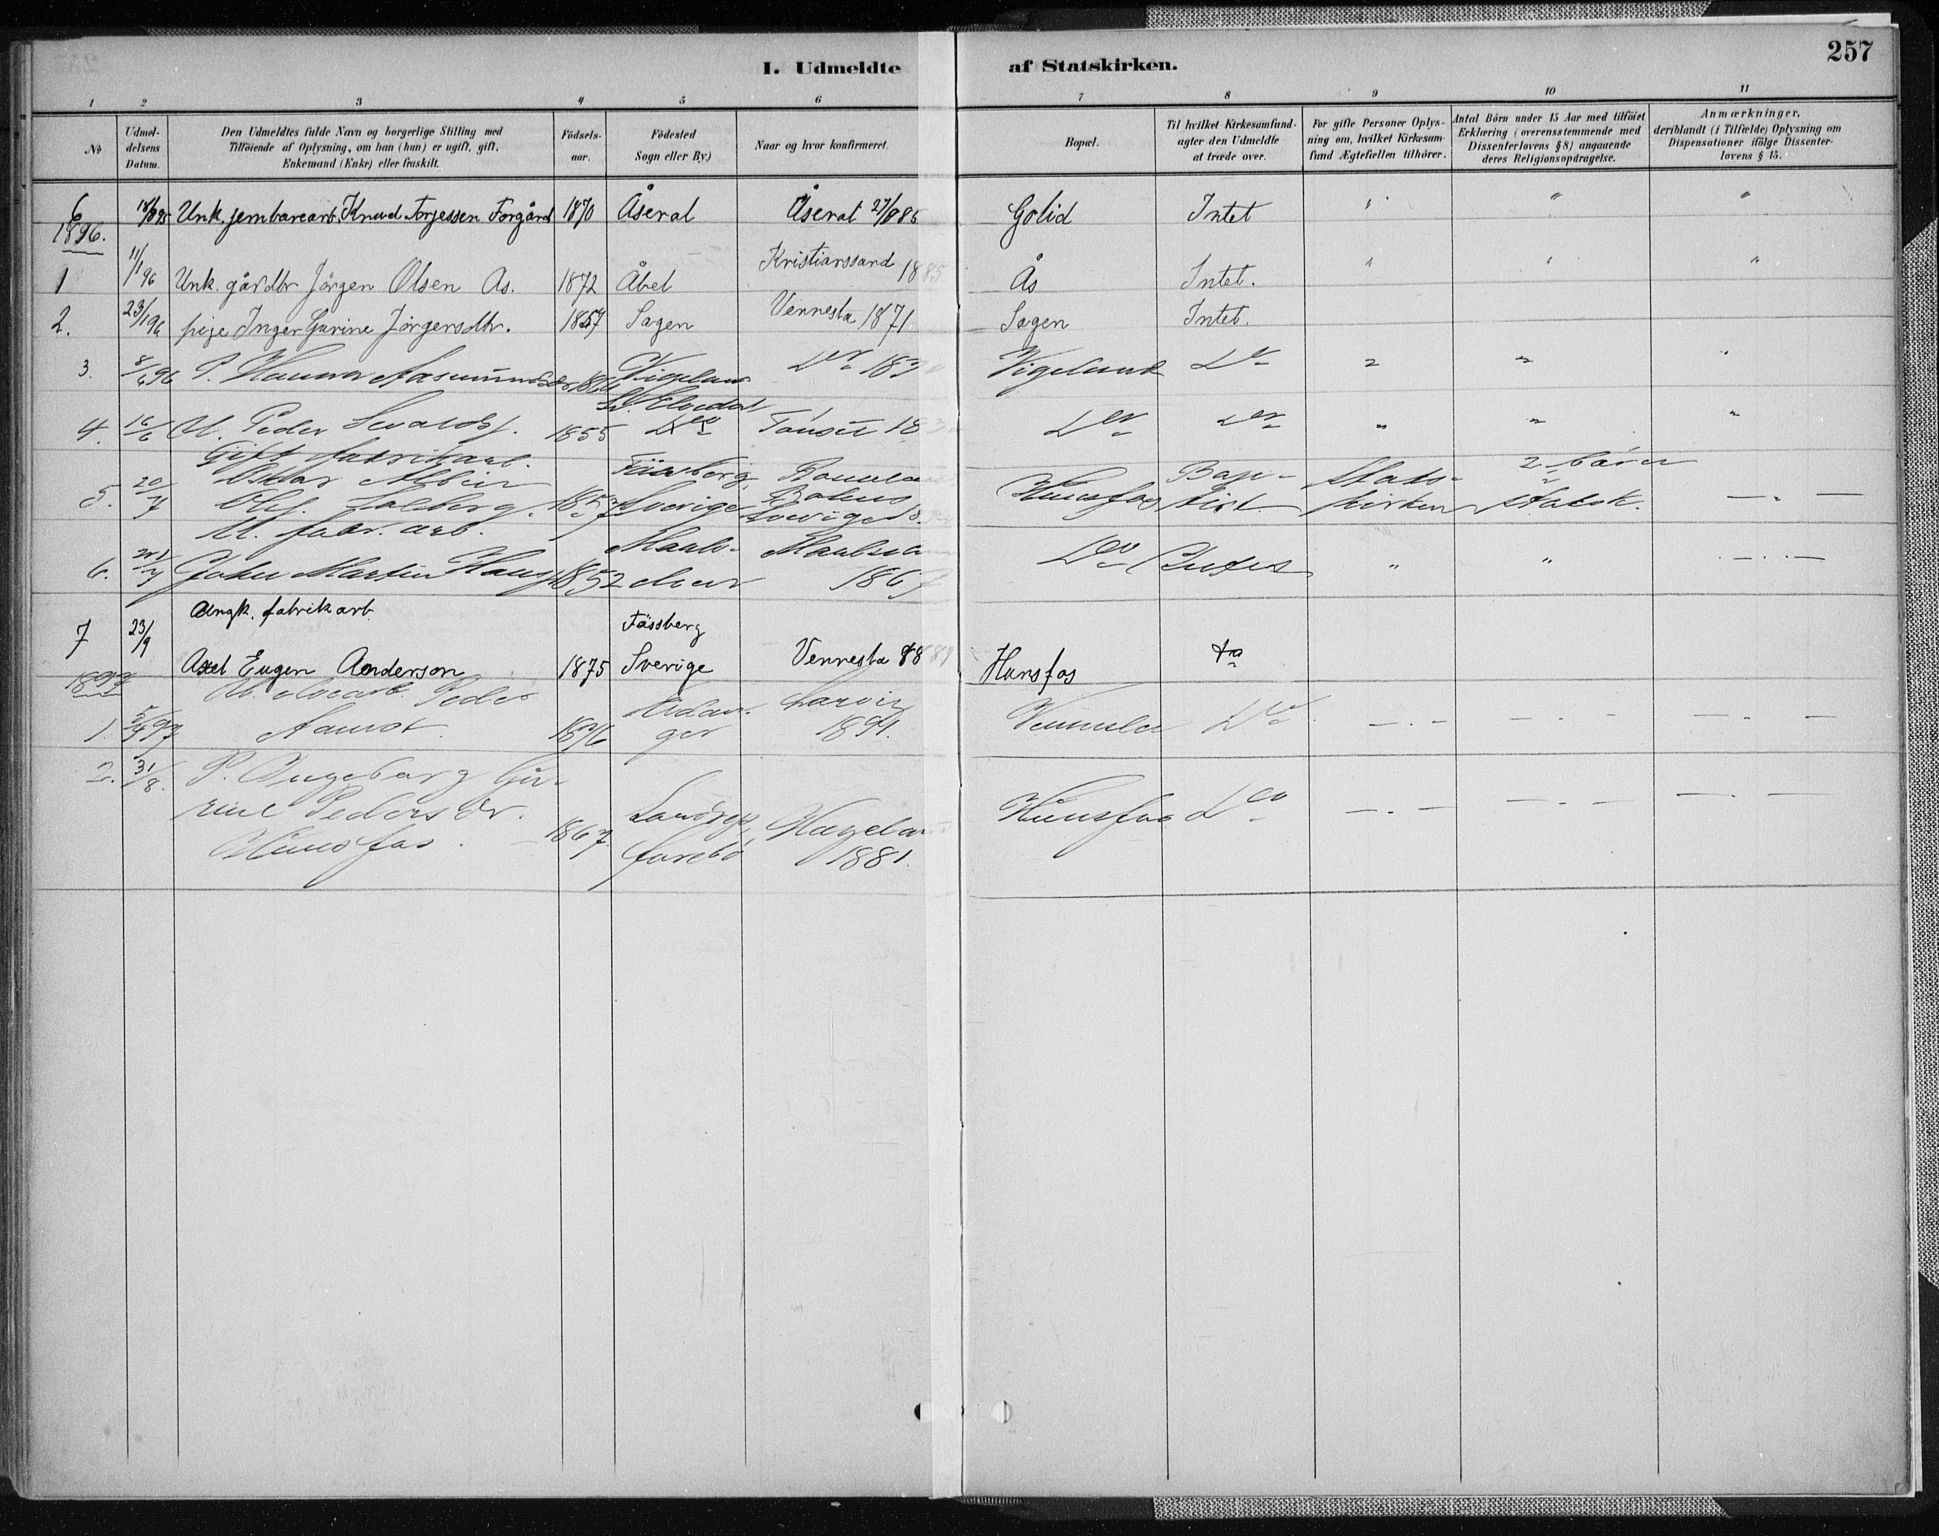 257
I. Udmeldte af Statskirken.
1 2 3 4 5 6 7 8 9 10 11
No
Udmeldelsens Datum.
Den Udmeldtes fulde Navn og borgerlige Stilling med
Tilføiende af Oplysning, om han (hun) er ugift, gift,
Enkemand (Enke) eller fraskilt.
Fødselsaar.
Fødested
Sogn eller By)
Naar og hvor konfirmeret.
Bopæl.
Til hvilket Kirkesamfund
agter den Udmeldte
at træde over.
For gifte Personer Oplys-
ning om, hvilket Kirkesam-
fund Ægtefællen tilhører.
Antal Børn under 15 Aar med tilføiet
Erklæring (overensstemmende med
Dissenterlovens §8) angaaende
deres Religionsopdragelse.
Anmærkninger,
deriblandt (i Tilfælde) Oplysning om
Dispensationer ifølge Dissenter-
lovens § 15.
6 Unk. jernbanearb. Knud Torjessen Forgård 1870 Åseral Åseral 27/9 85 Golid Intet " " "
1896.
1 11/1 96 Unk. gårdbr Jörgen Olsen Ås. 1872 Åbel Kristianssand 1885 Ås Intet. " " "
2. 23/1 96 pige Inger Gurine Jörgensdtr. 1857 Sagen Vennesla 1871 Sagen Intet.
3. 8/6 96 P. Hanna Aasmundsdr. Vigeland Do Vigeland Do " " "
4. 16/6 U. Peder Sevalds. 1855 Tönset Do Do " " "
Gift fabrikarb.
5. 20/7 Oskar Albin
Ols. Solberg. 1857 Sverige Sverige Hunsfos Baptist Statskirken 2 börn Statsk. — " —
U. fabr. arb.
6. John Martin Haug 1852 Maalselven Maalselv 1867 Do " " — " —
Ungk. fabrikarb.
7 23/9 Axel Eugen Anderson 1875 Fässberg Sverige Vennesla 1889 Hunsfos do
1897
1. 5/4 97 Peder
Aamot. 1876 Eidanger Larvig 1891. Vennesla Do — " — — " — — " —
2. 31/8. P. Ingeborg Gu-
rine Pedersdr.
Hunsfos. 1867 Hægeland 1881. Hunsfos Do — " — — " — — " —